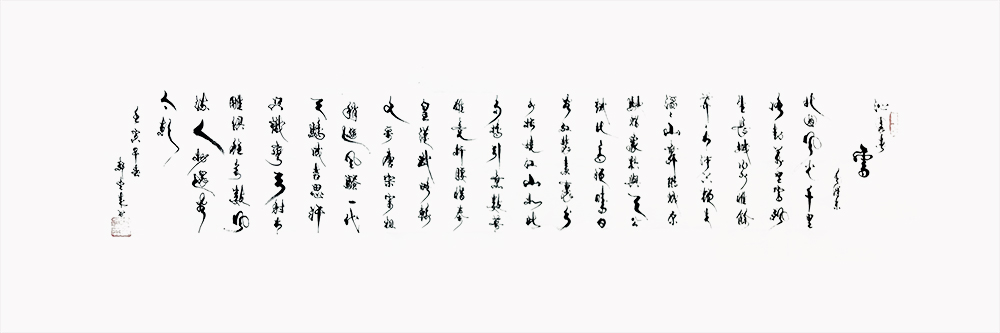 沁园春
雪
毛泽东
北国风光千里
冰封万里雪飘
望长城内外惟余
莽莽大河上下顿失
滔滔山舞银蛇原
驰蜡象欲与天公
试比高须晴日
看红装素裹分
外妖娆江山如此
多娇引无数英
雄竞折腰惜秦
皇汉武略输
文采唐宗宋祖
稍逊风骚一代
天骄成吉思汗
只识弯弓射大
雕俱往矣数风
流人物还看
今朝
壬寅年春